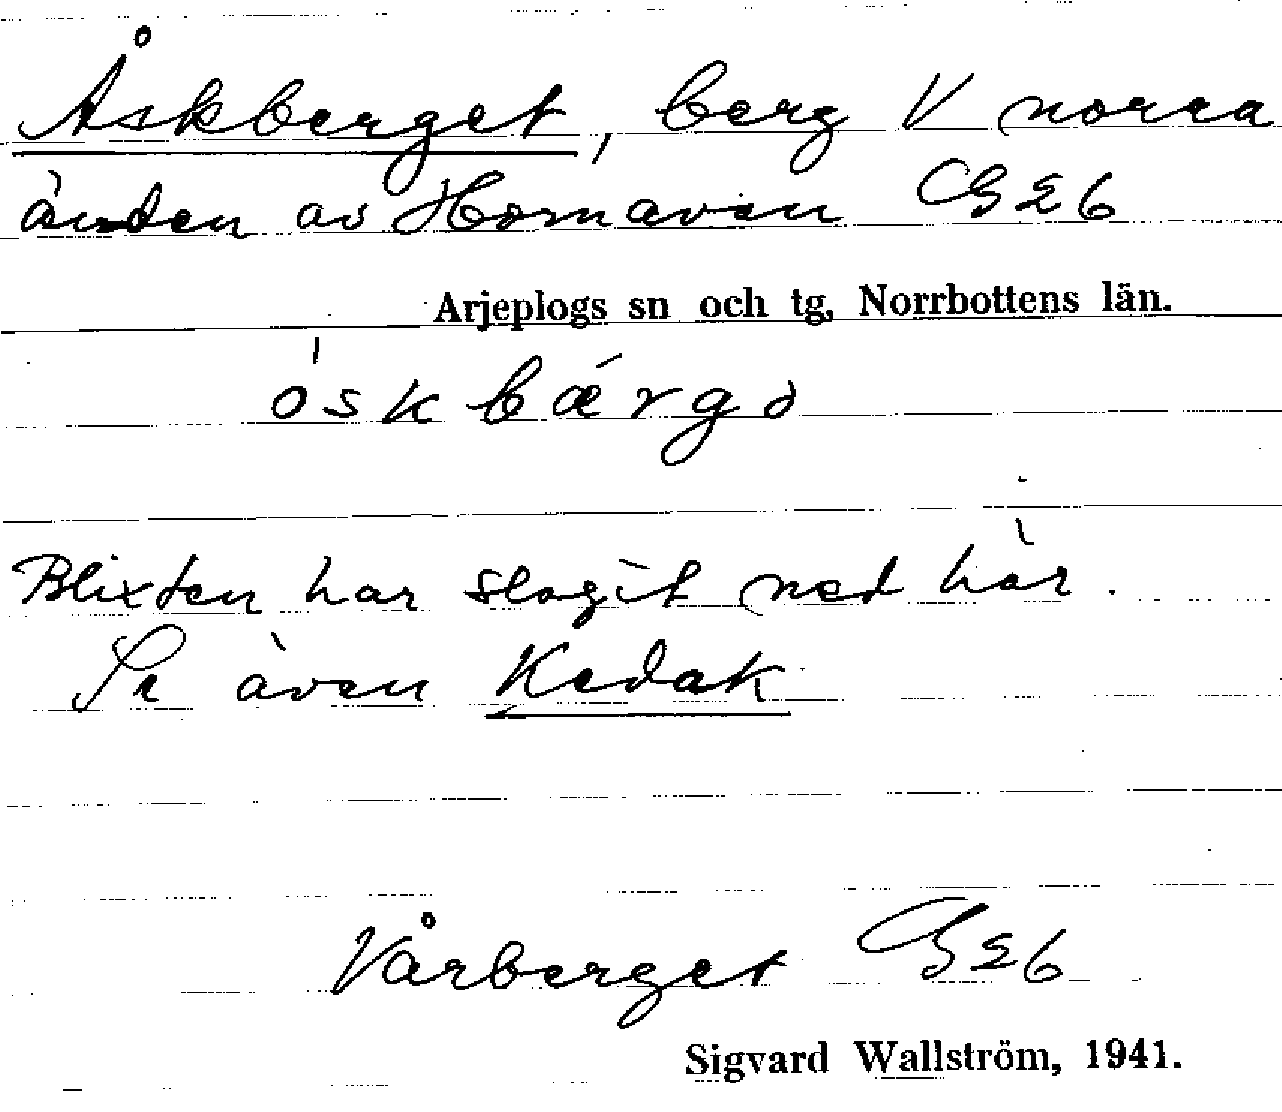 Åskberget, berg V norra
änden av Hornavan GE6
Arjeplogs sn och tg, Norrbottens län.
óskbǽrgə
Blixten har slagit ned här.
Se även Kedak
Vårberget GE6
Sigvard Wallström, 1941.